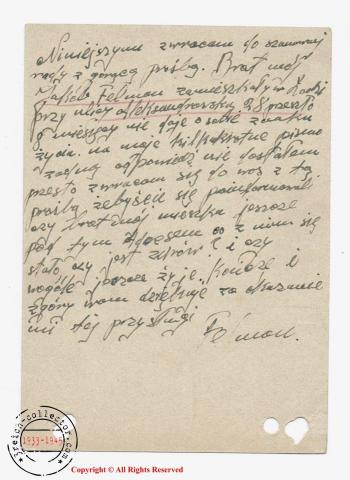 Niniejszym zwracam do szanownej
rady z gorącą prośbą. Brat mój
Jakób Felman zamieszkały w Łodzi
przy ulicy Aleksandrowskiej 28 przeszło
miesięcy nie daje o sobie znaku
życia. na moje kilkakrotne pisma
żadną odpowiedź nie dostałem
przeto zwracam się do was z tą
prośbą żebyście się poinformowali
czy brat mój mieszka jeszcze
pod tym adresem co z nim się
stało czy jest zdrów? i czy
wogóle jeszcze żyje. Kończę i
zgóry wam dziękuję za okazanie
mi tej przysługi
reich-collector.com
1933-1945
Copyright © All Rights Reserved